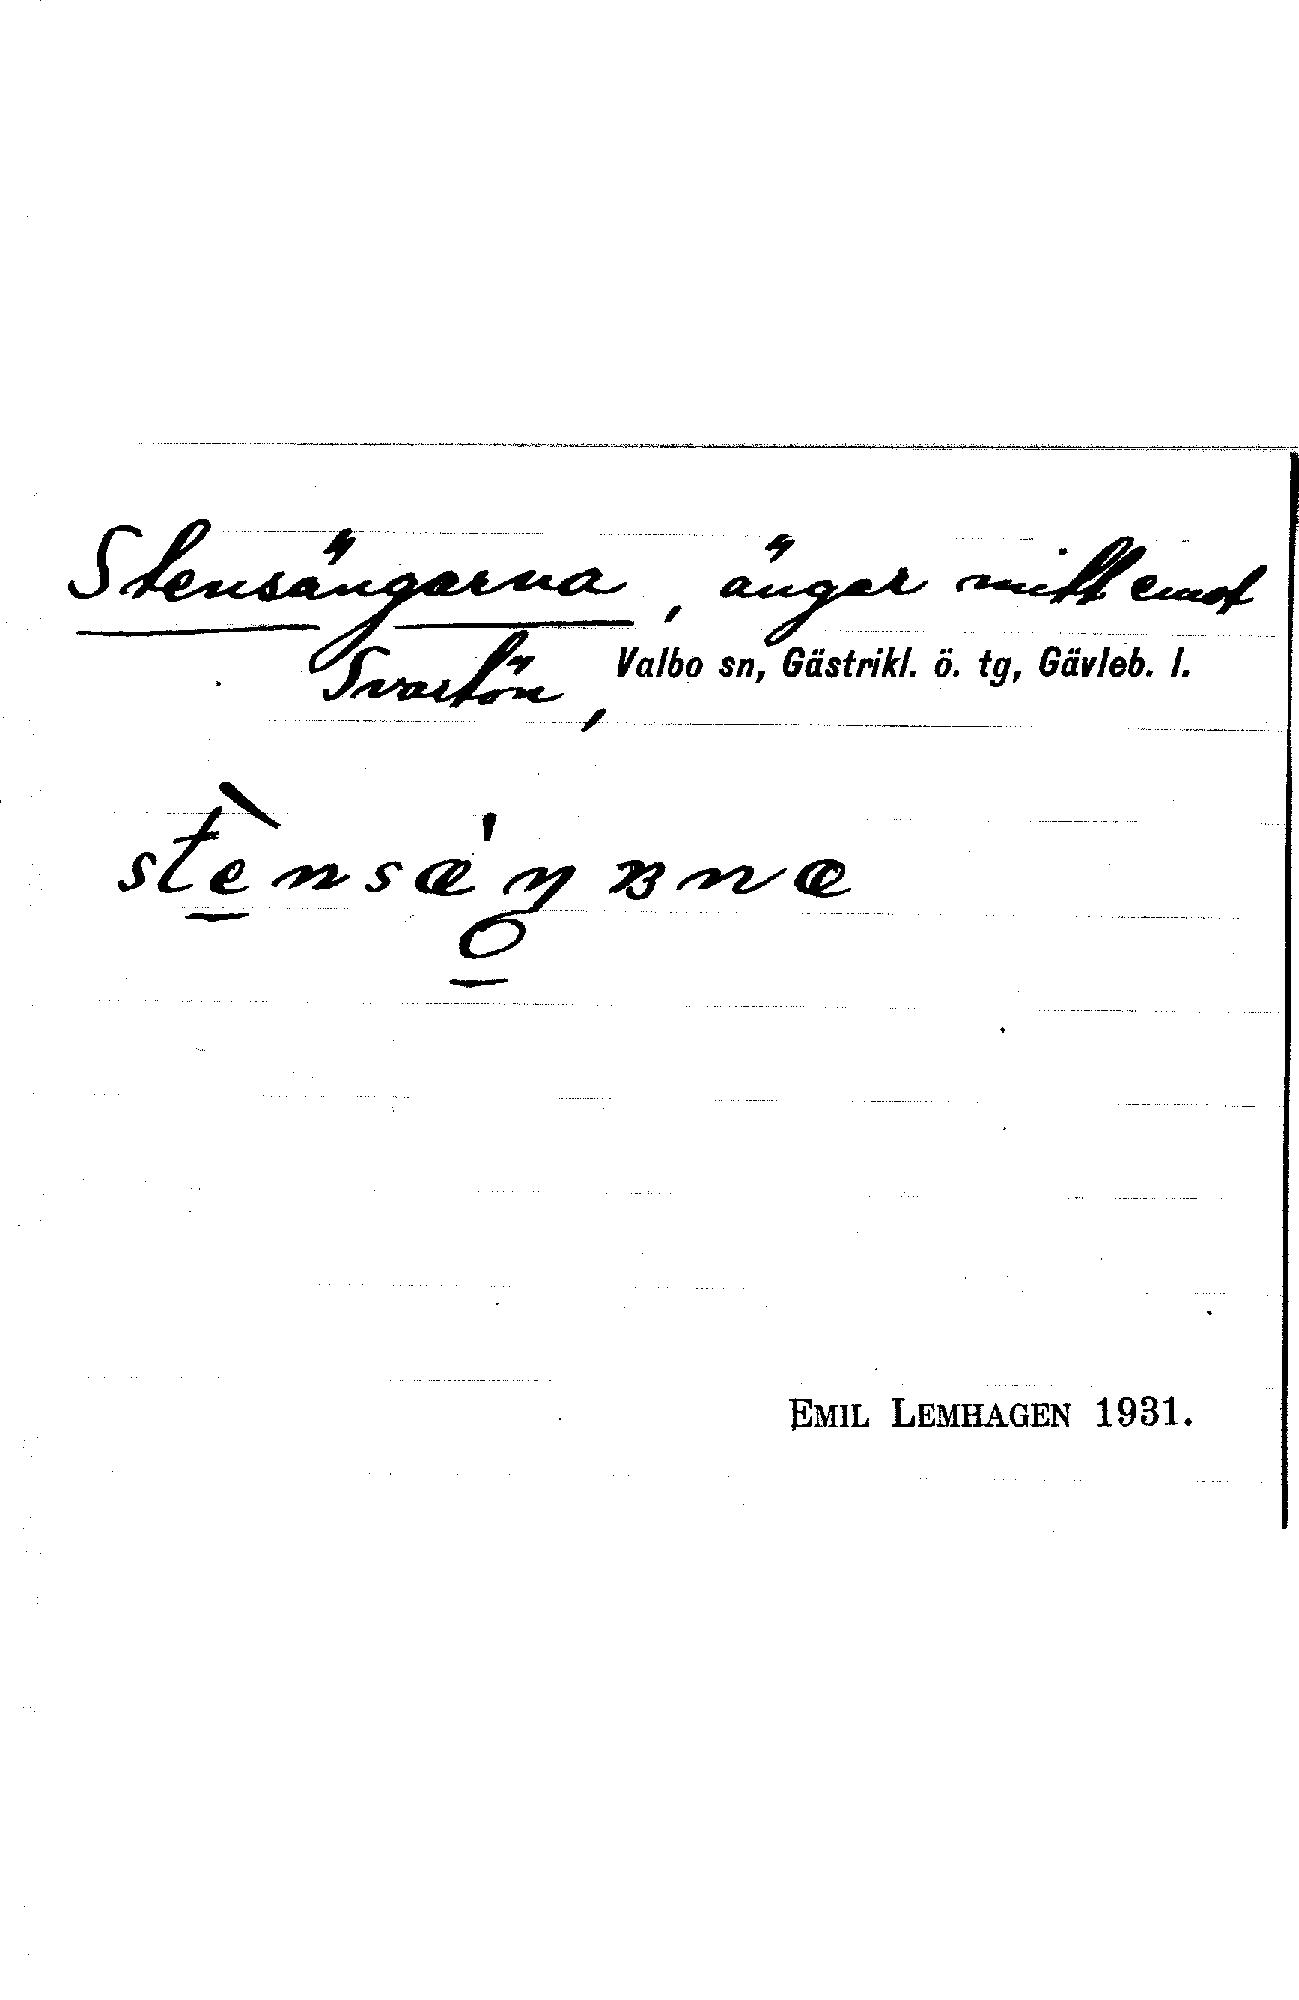 Stensängarna, ängar mitt emot
Svartön, Valbo sn, Gästrikl. ö. tg, Gävleb. l.
EMIL LEMHAGEN 1931.